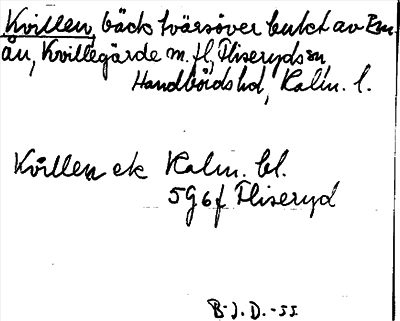 Kvillen, bäck tvärsöver bukt av Em-
ån, Kvillegärde m. fl, Fliseryds sn,
Handbörds hd, Kalm. l.
Kvillen ek Kalm. bl.
5G6f Fliseryd
B-J. D. -55